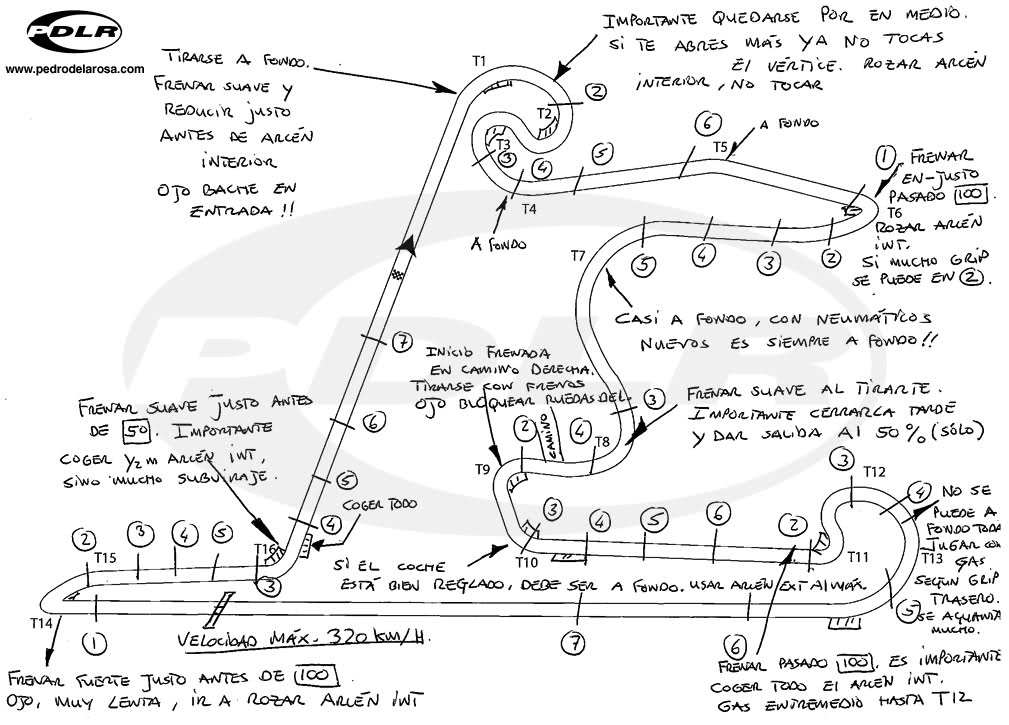 PDLR
www.pedrodelarosa.com
TIRARSE A FONDO.
FRENAR SUAVE Y
REDUCIR JUSTO
ANTES DE ARCÉN
INTERIOR
OJO BACHE EN
ENTRADA!!
T1
IMPORTANTE QUEDARSE POR EN MEDIO.
SI TE ABRES MÁS YA NO TOCAS
EL VÉRTICE. ROZAR ARCÉN
INTERIOR, NO TOCAR
2
T2
T3
3
4
5
6
T5
A FONDO
T4
A FONDO
1 FRENAR
EN-JUSTO
PASADO 100.
T6
ROZAR ARCÉN
INT.
SI MUCHO GRIP
SE PUEDE EN 2.
T7
5
4
3
2
CASI A FONDO, CON NEUMÁTICOS
NUEVOS ES SIEMPRE A FONDO!!
7
INICIO FRENADA
EN CAMINO DERECHA.
TIRARSE CON FRENOS
OJO BLOQUEAR RUEDAS DEL.
3
FRENAR SUAVE AL TIRARTE.
IMPORTANTE CERRARLA TARDE
Y DAR SALIDA AL 50% (SÓLO)
FRENAR SUAVE JUSTO ANTES
DE 50. IMPORTANTE
COGER 1/2 m ARCÉN INT,
SINO MUCHO SUBVIRAJE.
6
5
4
COGER TODO
2
CAMINO
4
T8
T9
3
T10
4
5
6
2
T11
3
T12
4
NO SE
PUEDE A
FONDO TODA
JUGAR CON
T13
GAS
SEGÚN GRIP
TRASERO.
SE AGUANTA
MUCHO.
5
SI EL COCHE
ESTÁ BIEN REGLADO, DEBE SER A FONDO. USAR ARCÉN EXT AL MÁX.
2
T15
3
4
5
T16
3
T14
1
VELOCIDAD MÁX. 320 KM/H.
7
6
FRENAR FUERTE JUSTO ANTES DE 100.
OJO, MUY LENTA, IR A ROZAR ARCÉN INT
FRENAR PASADO 100. ES IMPORTANTE
COGER TODO EL ARCÉN INT.
GAS ENTREMEDIO HASTA T12
PDLR